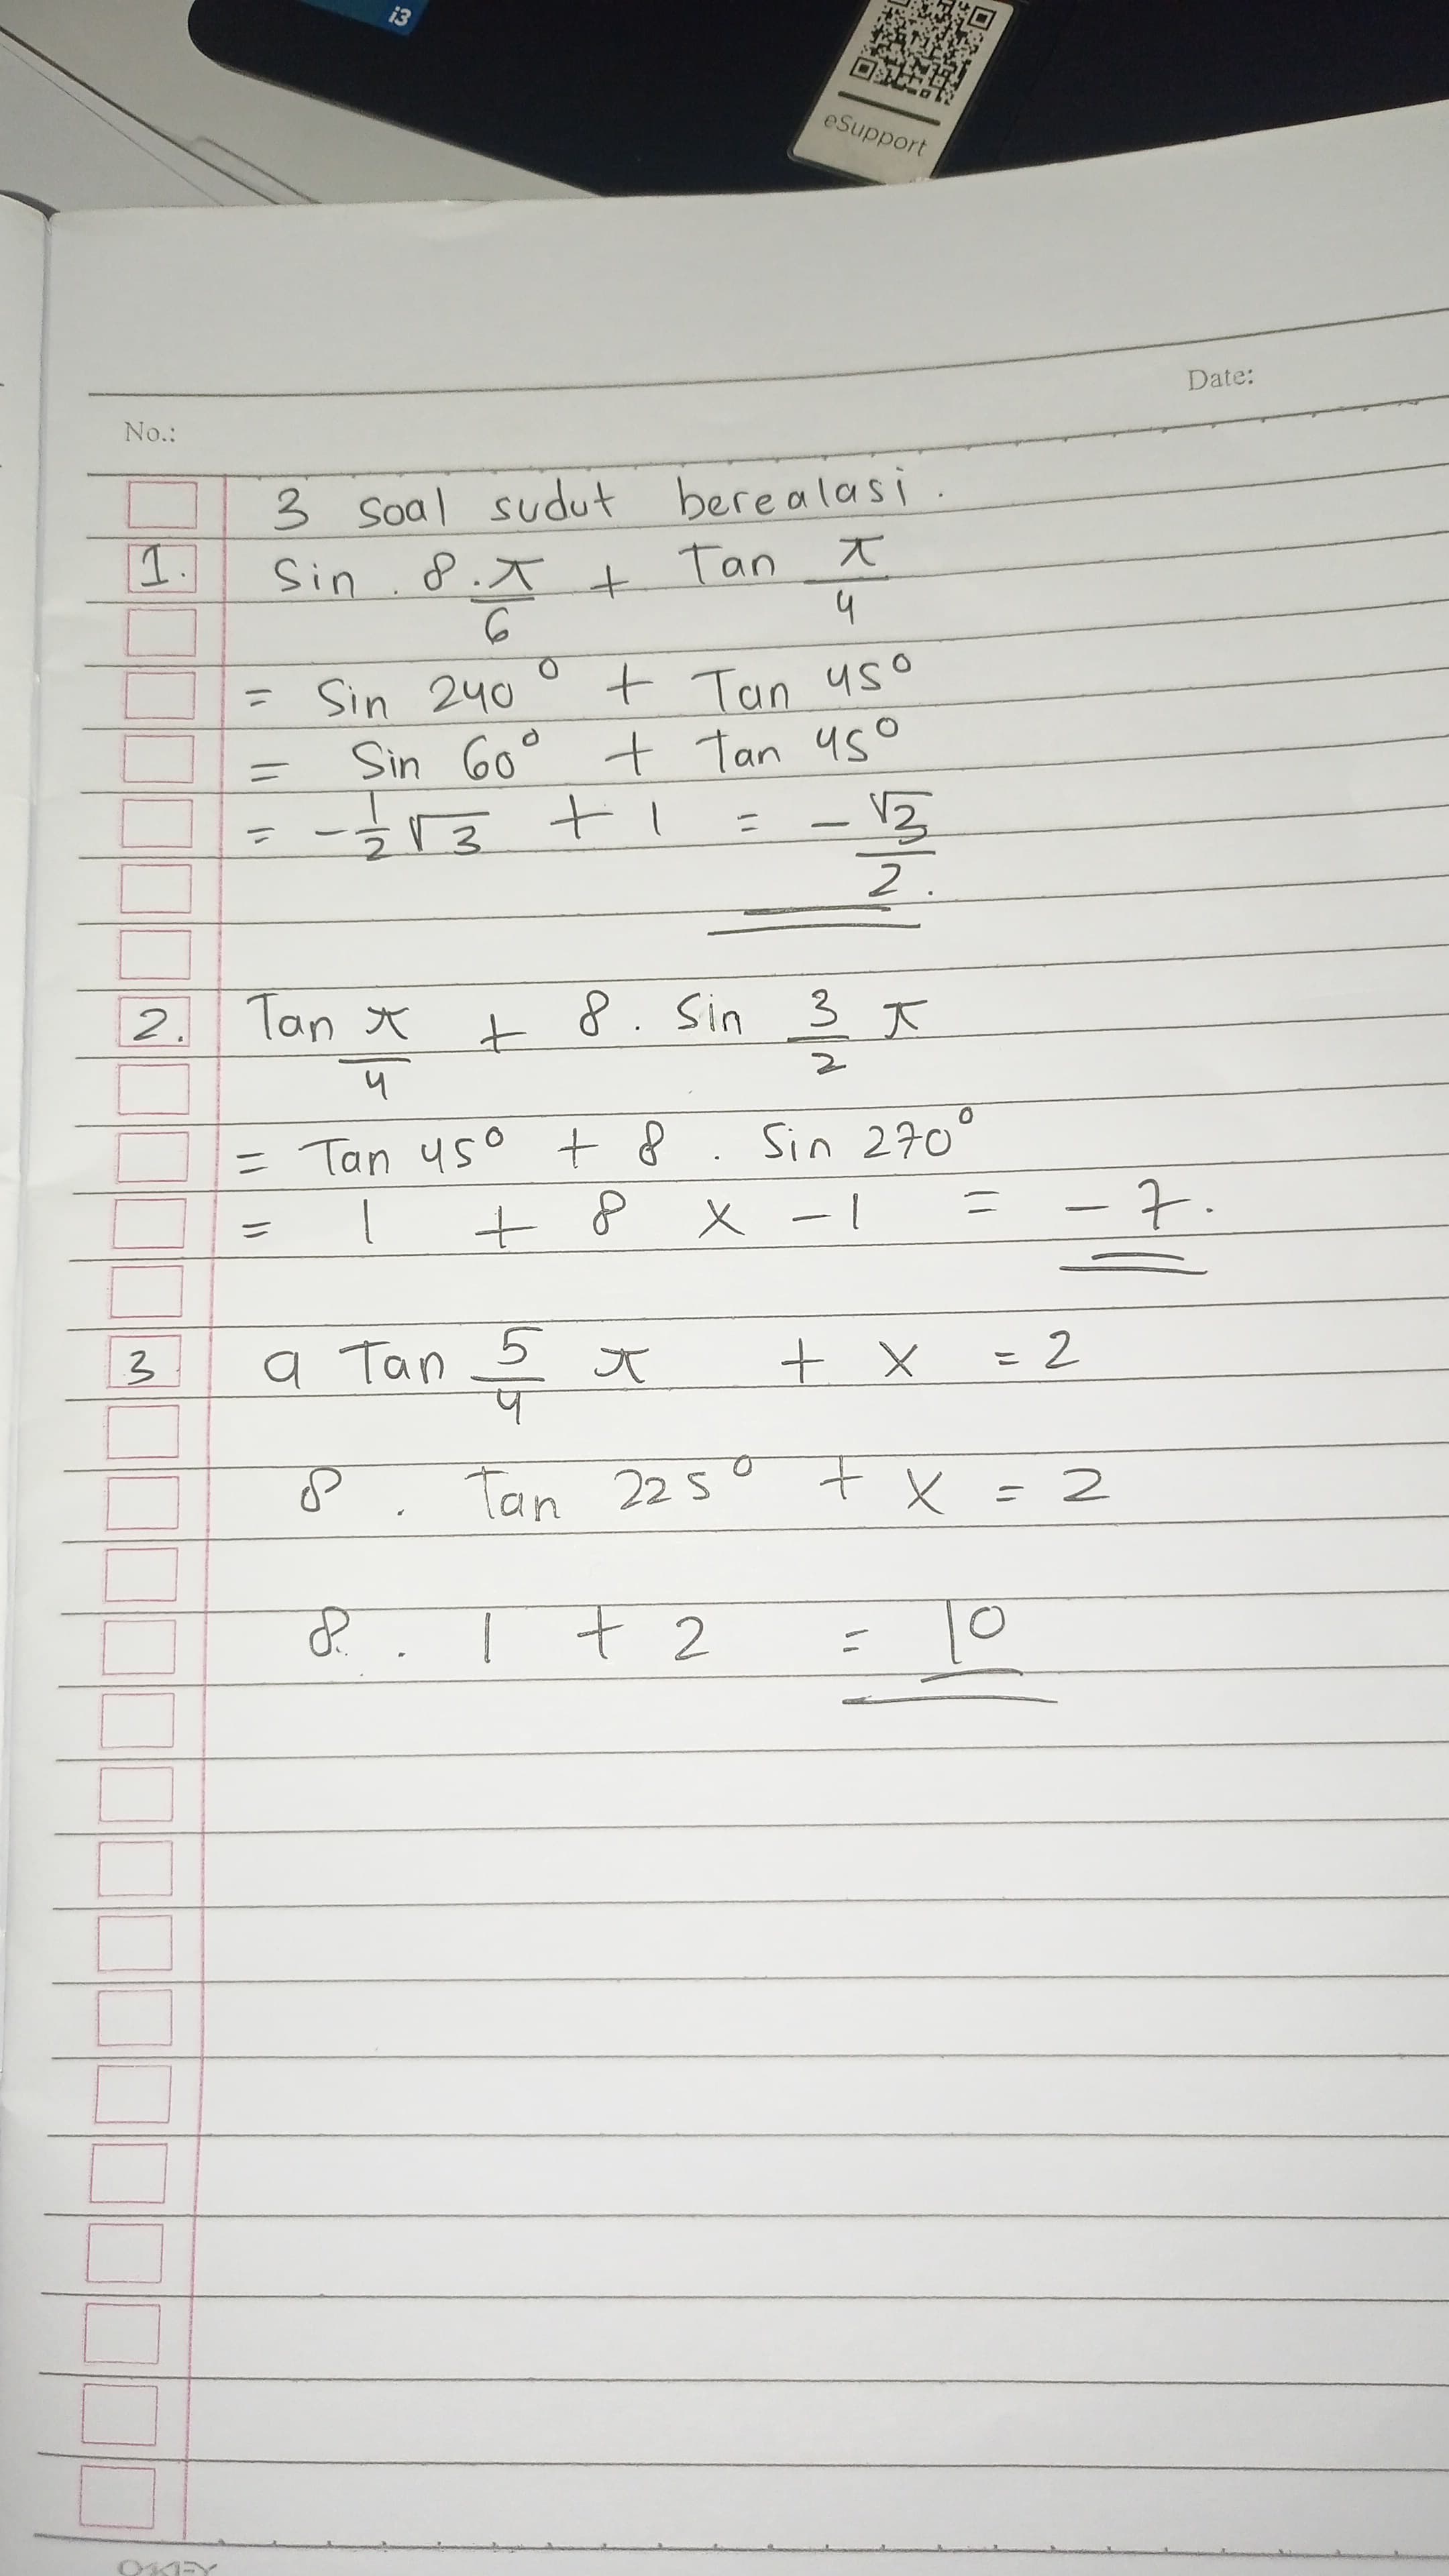 i3
eSupport
Date:
No.:
3 soal sudut berealasi.
1. Sin . 8 . π/6 + Tan π/4
= Sin 240° + Tan 45°
= Sin 60° + Tan 45°
= - 1/2 √3 + 1 = - √3/2.
2. Tan π/4 + 8 . Sin 3/2 π
= Tan 45° + 8 . Sin 270°
= 1 + 8 x -1 = -7.
3 a Tan 5/4 π + x = 2
8 . Tan 225° + x = 2
8 . 1 + 2 = 10